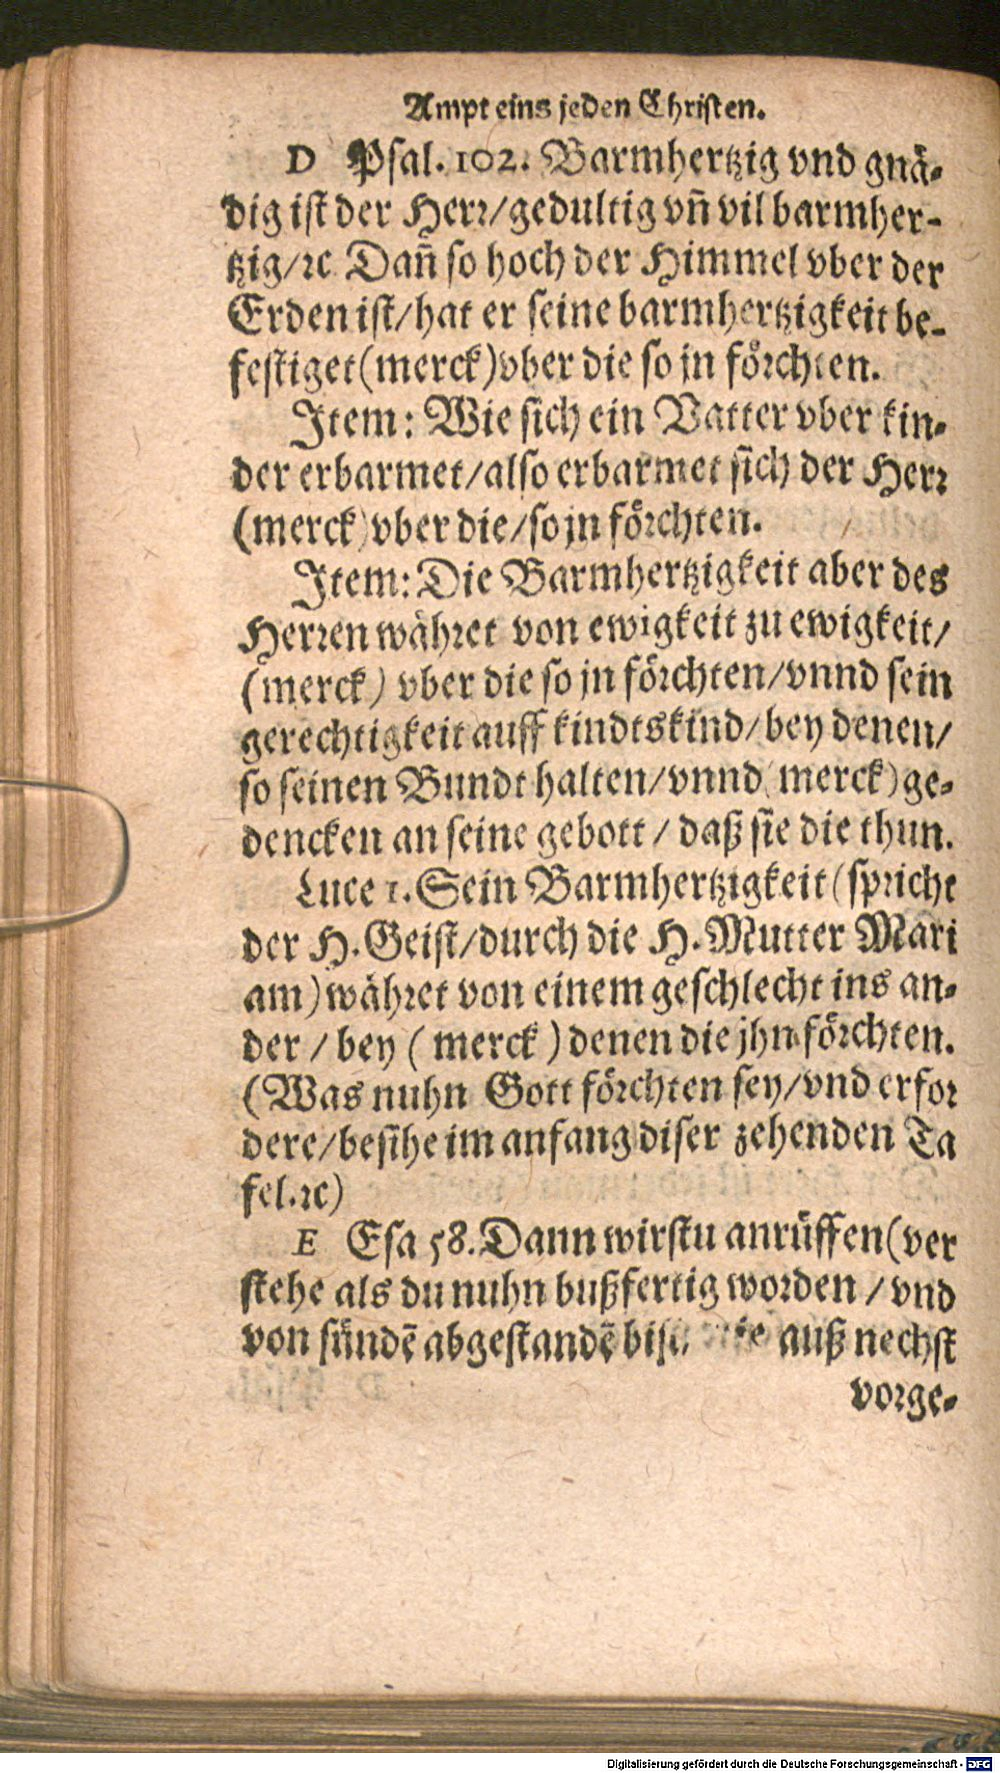 Ampt eins jeden Christen.
D Psal. 102. Barmhertzig vnd gnä-
dig ist der Herr/gedultig vñ vil barmher-
tzig/ꝛc Dañ so hoch der Himmel vber der
Erden ist/hat er seine barmhertzigkeit be-
festiget(merck)vber die so jn förchten.
Item: Wie sich ein Vatter vber kin-
der erbarmet/also erbarmet sich der Herr
(merck)vber die/so jn förchten.
Item: Die Barmhertzigkeit aber des
Herren währet von ewigkeit zu ewigkeit/
(merck) vber die so jn förchten/vnnd sein
gerechtigkeit auff kindtskind/bey denen/
so seinen Bundt halten/vnnd(merck)ge-
dencken an seine gebott / daß sie die thun.
Luce 1. Sein Barmhertzigkeit(spricht
der H. Geist/durch die H. Mutter Mari
am)währet von einem geschlecht ins an-
der / bey ( merck ) denen die jhn förchten.
(Was nuhn Gott förchten sey/vnd erfor
dere/besihe im anfang diser zehenden Ta
fel.ꝛc)
E Esa 58. Dann wirstu anrüffen(ver
stehe als du nuhn bußfertig worden / vnd
von sündẽ abgestandẽ bist auß nechst
vorge-
Digitalisierung gefördert durch die Deutsche Forschungsgemeinschaft - DFG